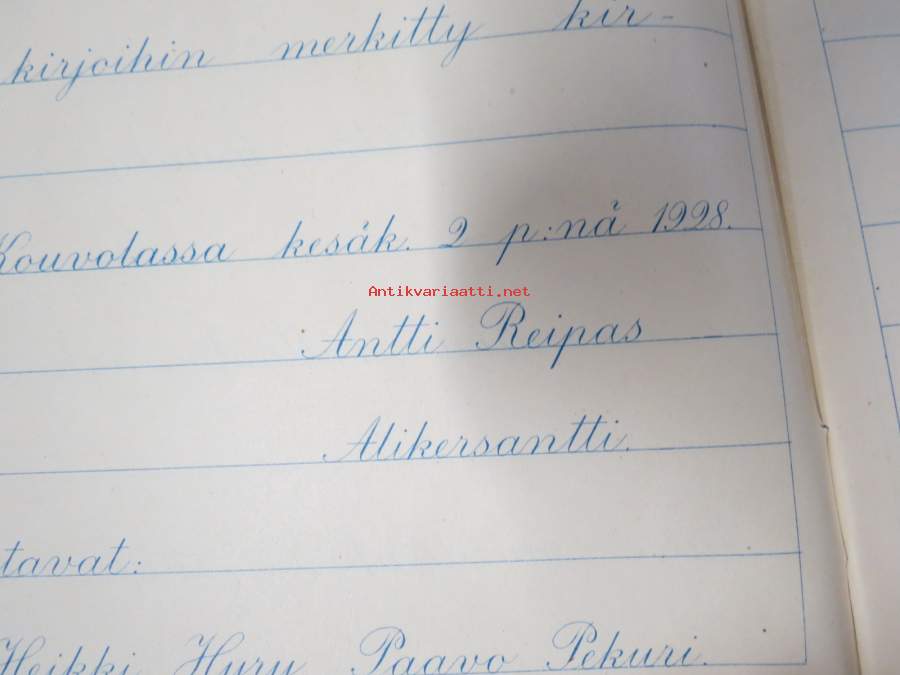 kirjoihin merkitty kir-
Kouvolassa kesäk. 2 p:nä 1928.
Antikvariaatti.net
Antti Reipas
Alikersantti.
tavat:
Heikki Hyry Paavo Pekuri.